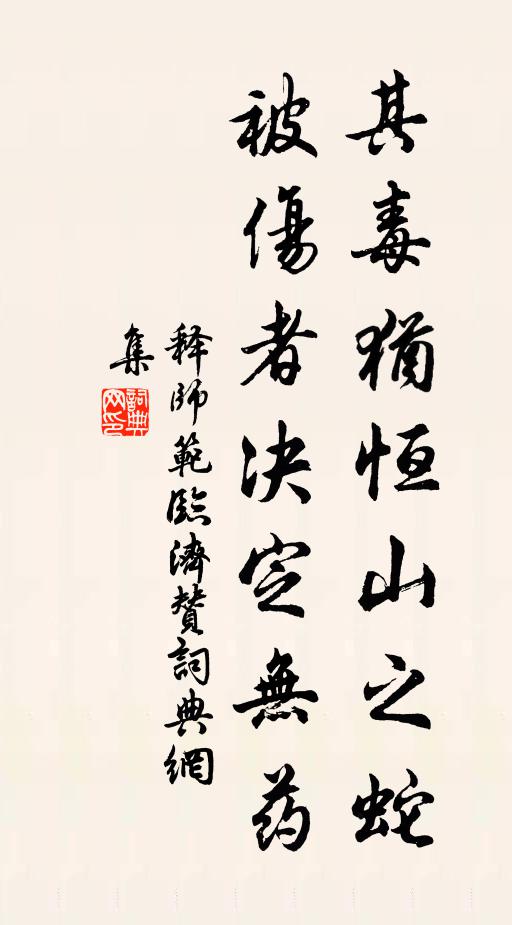 其毒猶恒山之蛇
被傷者决定無药
释師範臨濟贊詞典網
集
詞典网印